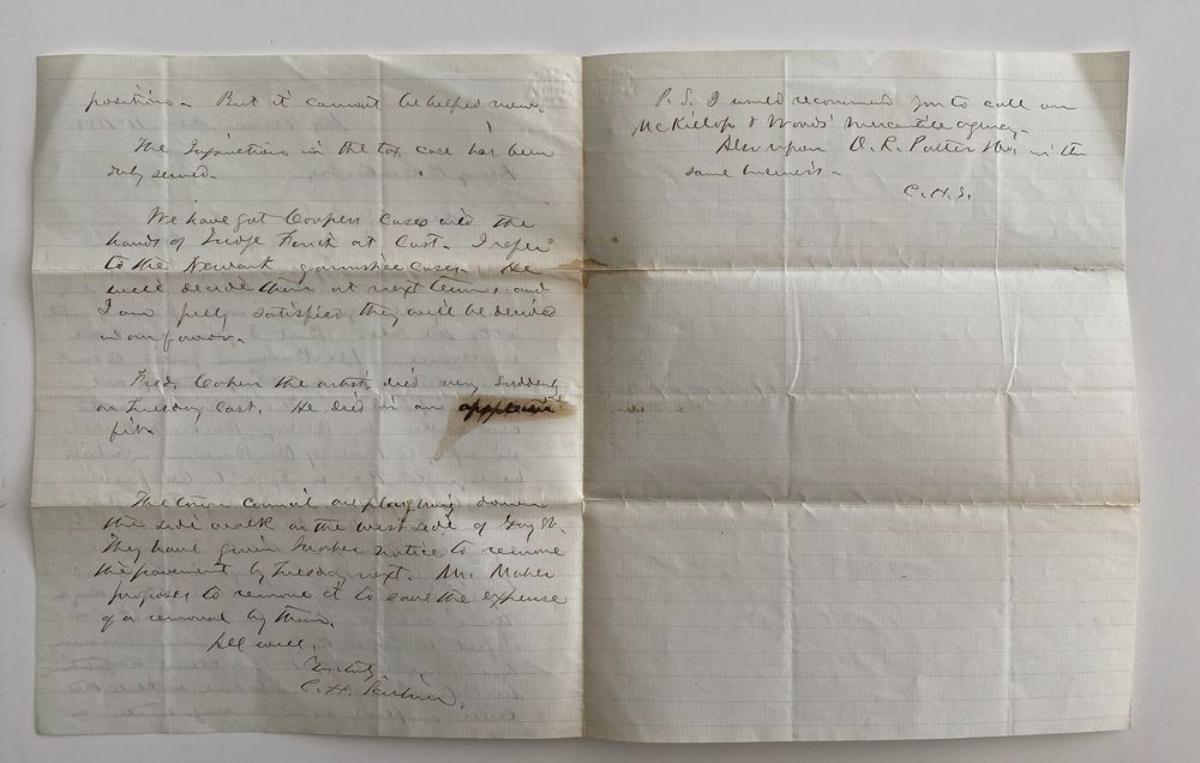 position. But it cannot be helped now.
The Injunction in the tax case has been
duly served.
We have got Coopers cases into the
hands of Judge Finch at last. I refer
to the Newark garnishee cases. He
will decide them at next term, and
I am fully satisfied they will be decided
in our favor.
Fred. Cohen the artist, died very suddenly
on Tuesday last. He died in an
fit.
The town council are ploughing down
the side walk on the west side of Gay St.
They have given Maher notice to remove
the pavement by Tuesday next. Mr. Maher
proposes to remove it to save the expense
of a removal by them.
All well.
Yrs truly
C. H.
P. S. I would recommend you to call on
McKillop & Woods' mercantile agency.
Also upon O. R. Potter in the
same business.
C. H. S.